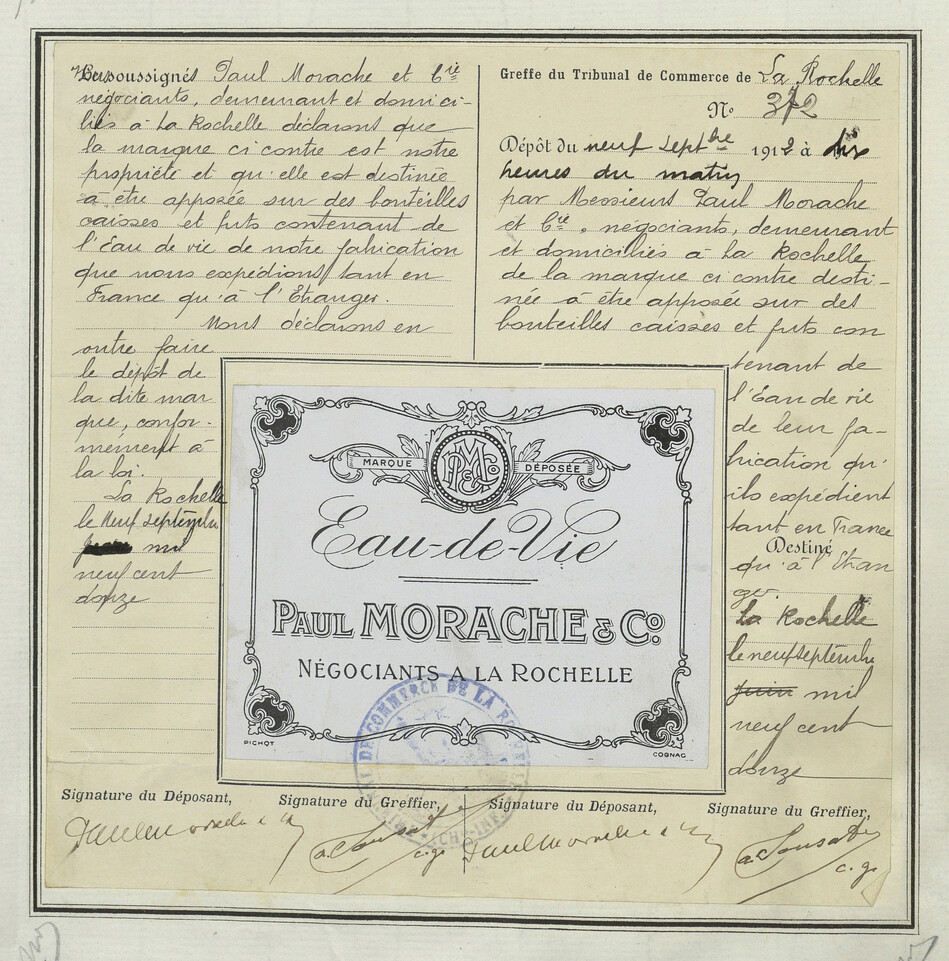 Nous soussignés Paul Morache et Cie
négociants, demeurant et domici-
liés à La Rochelle déclarons que
la marque ci contre est notre
propriété et qu'elle est destinée
à être apposée sur des bouteilles
caisses et futs contenant de
l'Eau de vie de notre fabrication
que nous expédions tant en
France qu'à l'Etranger.
Nous déclarons en
outre faire
le dépôt de
la dite mar
que, confor-
mément à
la loi.
La Rochelle
le Neuf septembre
mil
neuf cent
douze
Greffe du Tribunal de Commerce de La Rochelle
No 372
Dépôt du neuf septbre 1912 à dix
heures du matin
par Messieurs Paul Morache
et Cie, négociants, demeurant
et domiciliés à La Rochelle
de la marque ci contre desti-
née à être apposée sur des
bouteilles caisses et futs con
tenant de
l'Eau de vie
de leur fa-
brication qu'
ils expédient
tant en France
Destiné
qu'à l'Etran
ger.
La Rochelle
le neuf septembre
juin mil
neuf cent
douze
MARQUE PM&Co DÉPOSÉE
Eau-de-Vie
PAUL MORACHE & Co.
NÉGOCIANTS A LA ROCHELLE
PICHOT COGNAC
DE COMMERCE DE LA
Signature du Déposant, Signature du Greffier, Signature du Déposant, Signature du Greffier,
Paul Morache & Cie
c.g.
Paul Morache & Cie
c.g.